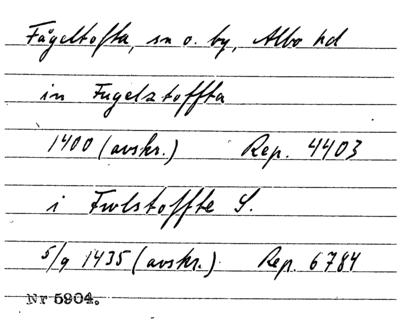 Fågeltofta, sn o. by, Albo hd
in Fugelztoffta
1400 (avskr.) Rep. 4403
i Fwlstoffte S.
5/9 1435 (avskr.) Rep. 6784
Nr 5904.